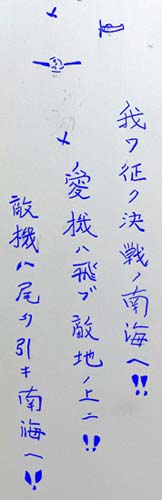 我ワ征ク決戦ノ南海へ!!
愛機ハ飛ブ敵地ノ上ニ!!
敵機ハ尾ヲ引キ南海へ!!